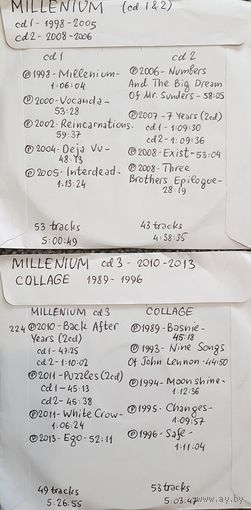 MILLENIUM (cd 1&2)
cd1 - 1998-2005
cd2 - 2008-2006
cd1
℗1998-Millenium-
1:06:04
℗2000-Vocanda-
53:28
℗2002-Reincarnations-
59:37
℗2004-Deja Vu-
48:13
℗2005-Interdead-
1:13:24
53 tracks
5:00:49
cd 2
℗2006-Numbers
And The Big Dream
Of Mr. Sunders-58:05
℗2007-7 Years (2cd)
cd1-1:09:30
cd2-1:09:36
℗2008-Exist-53:04
℗2008-Three
Brothers Epilogue-
28:19
43 tracks
4:38:35
MILLENIUM cd3 - 2010-2013
COLLAGE 1989-1996
MILLENIUM cd3
224 ℗2010-Back After
Years (2cd)
cd1-47:25
cd2-1:10:02
℗2011-Puzzles (2cd)
cd1-45:13
cd2-45:38
℗2011-White Crow-
1:06:24
℗2013-Ego-52:11
49 tracks
5:26:55
COLLAGE
℗1989-Basnie-
45:18
℗1993-Nine Songs
Of John Lennon-44:50
℗1994-Moonshine-
1:12:36
℗1995-Changes-
1:09:57
℗1996-Safe-
1:11:04
53 tracks
5:03:47
www.ay.by